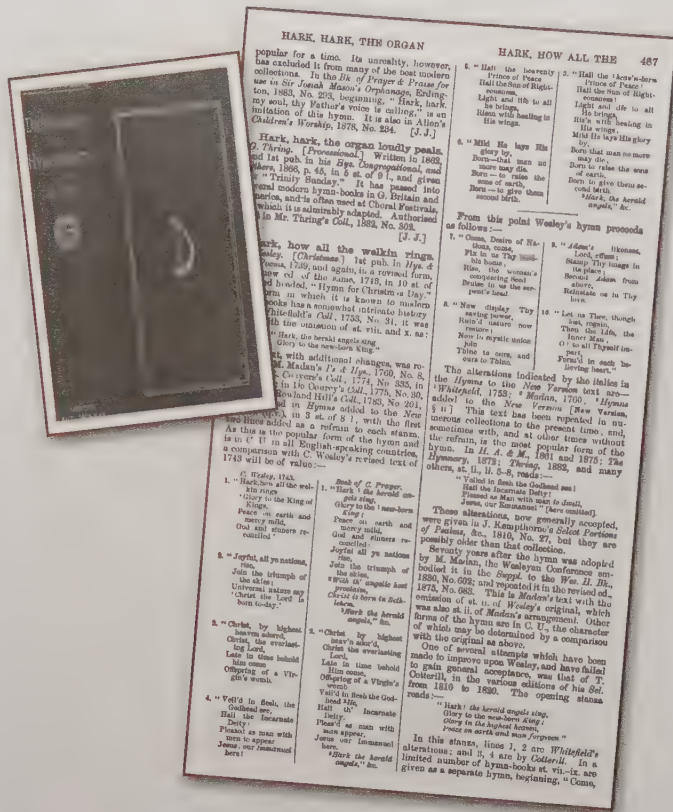 HARK, HARK, THE ORGAN
HARK, HOW ALL THE 487
popular for a time. Its unreality, however,
has excluded it from many of the best modern
collections. In the Bk. of Prayer & Praise for
use in Sir Josiah Mason's Orphanage, Erding-
ton, 1883, No. 293, beginning, "Hark, hark
my soul, thy Father's voice is calling," is an
imitation of this hymn. It is also in Allon's
Children's Worship, 1878, No. 234. [J. J.]
Hark, hark, the organ loudly peals.
G. Thring. [Processional.] Written in 1862,
and 1st pub. in his Hys. Congregational, and
Others, 1866, p. 45, in 5 st. of 9 l., and given
"Trinity Sunday." It has passed into
several modern hymn-books in G. Britain and
America, and is often used at Choral Festivals,
which it is admirably adapted. Authorised
in Mr. Thring's Coll., 1882, No. 302.
[J. J.]
Hark, how all the welkin rings.
Wesley. [Christmas.] 1st pub. in Hys. &
Poems, 1739, and again, in a revised form,
new ed. of the same, 1743, in 10 st. of
and headed, "Hymn for Christmas Day."
form in which it is known to modern
books has a somewhat intricate history
Whitefield's Coll., 1753, No. 31, it was
with the omission of st. viii. and x. as:
"Hark, the herald angels sing
Glory to the new-born King."
text, with additional changes, was re-
M. Madan's Ps. & Hys., 1760, No. 8,
Conyers's Coll., 1774, No 335, in
in De Courcy's Coll., 1775, No. 30,
Rowland Hill's Coll., 1783, No 201,
in Hymns added to the New
in 3 st. of 8 l, with the first
two lines added as a refrain to each stanza.
As this is the popular form of the hymn and
is in C U in all English-speaking countries,
a comparison with C. Wesley's revised text of
1743 will be of value:—
C. Wesley, 1743.
1. "Hark, how all the wel-
kin rings
'Glory to the King of
Kings,
Peace on earth and
mercy mild,
God and sinners re-
conciled'
2. "Joyful, all ye nations,
rise,
Join the triumph of
the skies;
Universal nature say
'Christ the Lord is
born to-day.'
3. "Christ, by highest
heaven adored,
Christ, the everlast-
ing Lord,
Late in time behold
him come
Offspring of a Vir-
gin's womb.
4. "Veil'd in flesh, the
Godhead see,
Hail the Incarnate
Deity!
Pleased as man with
men to appear
Jesus, our Immanuel
here!
Book of C. Prayer.
1. "Hark! the herald an-
gels sing,
Glory to the new-born
King;
Peace on earth and
mercy mild,
God and sinners re-
conciled:
Joyful all ye nations
rise,
Join the triumph of
the skies,
With th' angelic host
proclaim,
Christ is born in Beth-
lehem.
Hark the herald
angels," &c.
2. "Christ by highest
heav'n ador'd,
Christ the everlasting
Lord,
Late in time behold
Him come,
Offspring of a Virgin's
womb
Veil'd in flesh the God-
head He,
Hail th' Incarnate
Deity:
Pleas'd as man with
man appear,
Jesus our Immanuel
here.
Hark the herald
angels," &c.
5. "Hail the heavenly
Prince of Peace
Hail the Sun of Right-
eousness,
Light and life to all
he brings,
Risen with healing in
His wings.
6. "Mild He lays His
glory by,
Born—that man no
more may die,
Born—to raise the
sons of earth,
Born—to give them
second birth.
3. "Hail the heav'n-born
Prince of Peace!
Hail the Sun of Right-
eousness!
Light and life to all
He brings,
Ris'n with healing in
His wings,
Mild He lays His glory
by,
Born that man no more
may die,
Born to raise the sons
of earth,
Born to give them se-
cond birth.
Hark, the herald
angels," &c.
From this point Wesley's hymn proceeds
as follows:—
7. "Come, Desire of Na-
tions, come,
Fix in Us Thy hum-
ble home;
Rise, the woman's
conquering Seed
Bruise in us the ser-
pent's head.
8. "Now display Thy
saving power,
Ruin'd nature now
restore;
Now in mystic union
join
Thine to ours, and
ours to Thine.
9. "Adam's likeness,
Lord, efface;
Stamp Thy image in
its place;
Second Adam from
above,
Reinstate us in Thy
love.
10. "Let us Thee, though
lost, regain,
Thee the Life, the
Inner Man,
O! to all Thyself im-
part,
Form'd in each be-
lieving heart."
The alterations indicated by the italics in
the Hymns to the New Version text are—
Whitefield, 1753; Madan, 1760. Hymns
added to the New Version [New Version,
§ ii] This text has been repeated in nu-
merous collections to the present time, and,
sometimes with, and at other times without
the refrain, is the most popular form of the
hymn. In H. A. & M., 1861 and 1875; The
Hymnary, 1872; Thring, 1882, and many
others, st. ii., ll. 5-8, reads:—
"Veiled in flesh the Godhead see!
Hail the Incarnate Deity!
Pleased as Man with man to dwell,
Jesus, our Emmanuel" [here omitted].
These alterations, now generally accepted,
were given in J. Kempthorne's Select Portions
of Psalms, &c., 1810, No. 27, but they are
possibly older than that collection.
Seventy years after the hymn was adopted
by M. Madan, the Wesleyan Conference em-
bodied it in the Suppl. to the Wes. H. Bk.,
1830, No. 602; and repeated it in the revised ed.,
1875, No. 683. This is Madan's text with the
omission of st. ii. of Wesley's original, which
was also st. ii. of Madan's arrangement. Other
forms of the hymn are in C. U., the character
of which may be determined by a comparison
with the original as above.
One of several attempts which have been
made to improve upon Wesley, and have failed
to gain general acceptance, was that of T.
Cotterill, in the various editions of his Sel.
from 1810 to 1820. The opening stanza
reads:—
"Hark! the herald angels sing,
Glory to the new-born King;
Glory in the highest heaven,
Peace on earth and man forgiven"
In this stanza, lines 1, 2 are Whitefield's
alterations; and 3, 4 are by Cotterill. In a
limited number of hymn-books st. vii.-ix. are
given as a separate hymn, beginning, "Come,